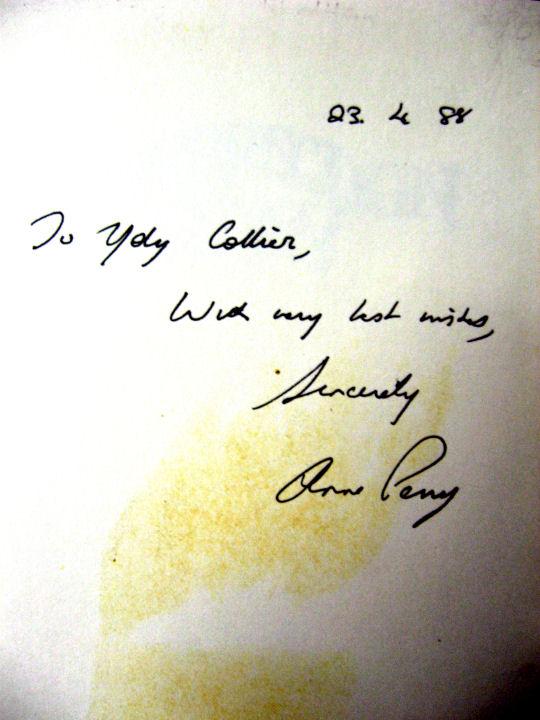 23. 4 88
To Yoly Collier,
With very best wishes,
Sincerely
Anne Perry